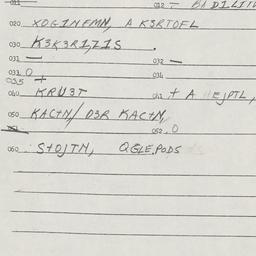 011 — 012 — BADILITU
020 XOGINFMN, A K3RTOFL
030 K3K3RIZIS .
031 — 032 —
033 O 034
035 +
040 KRU3T 041 + A HEJPTL,
050 KACTN/ D3R KACTN,
051 052 . O
060 STOJTN, QGLE.PODS